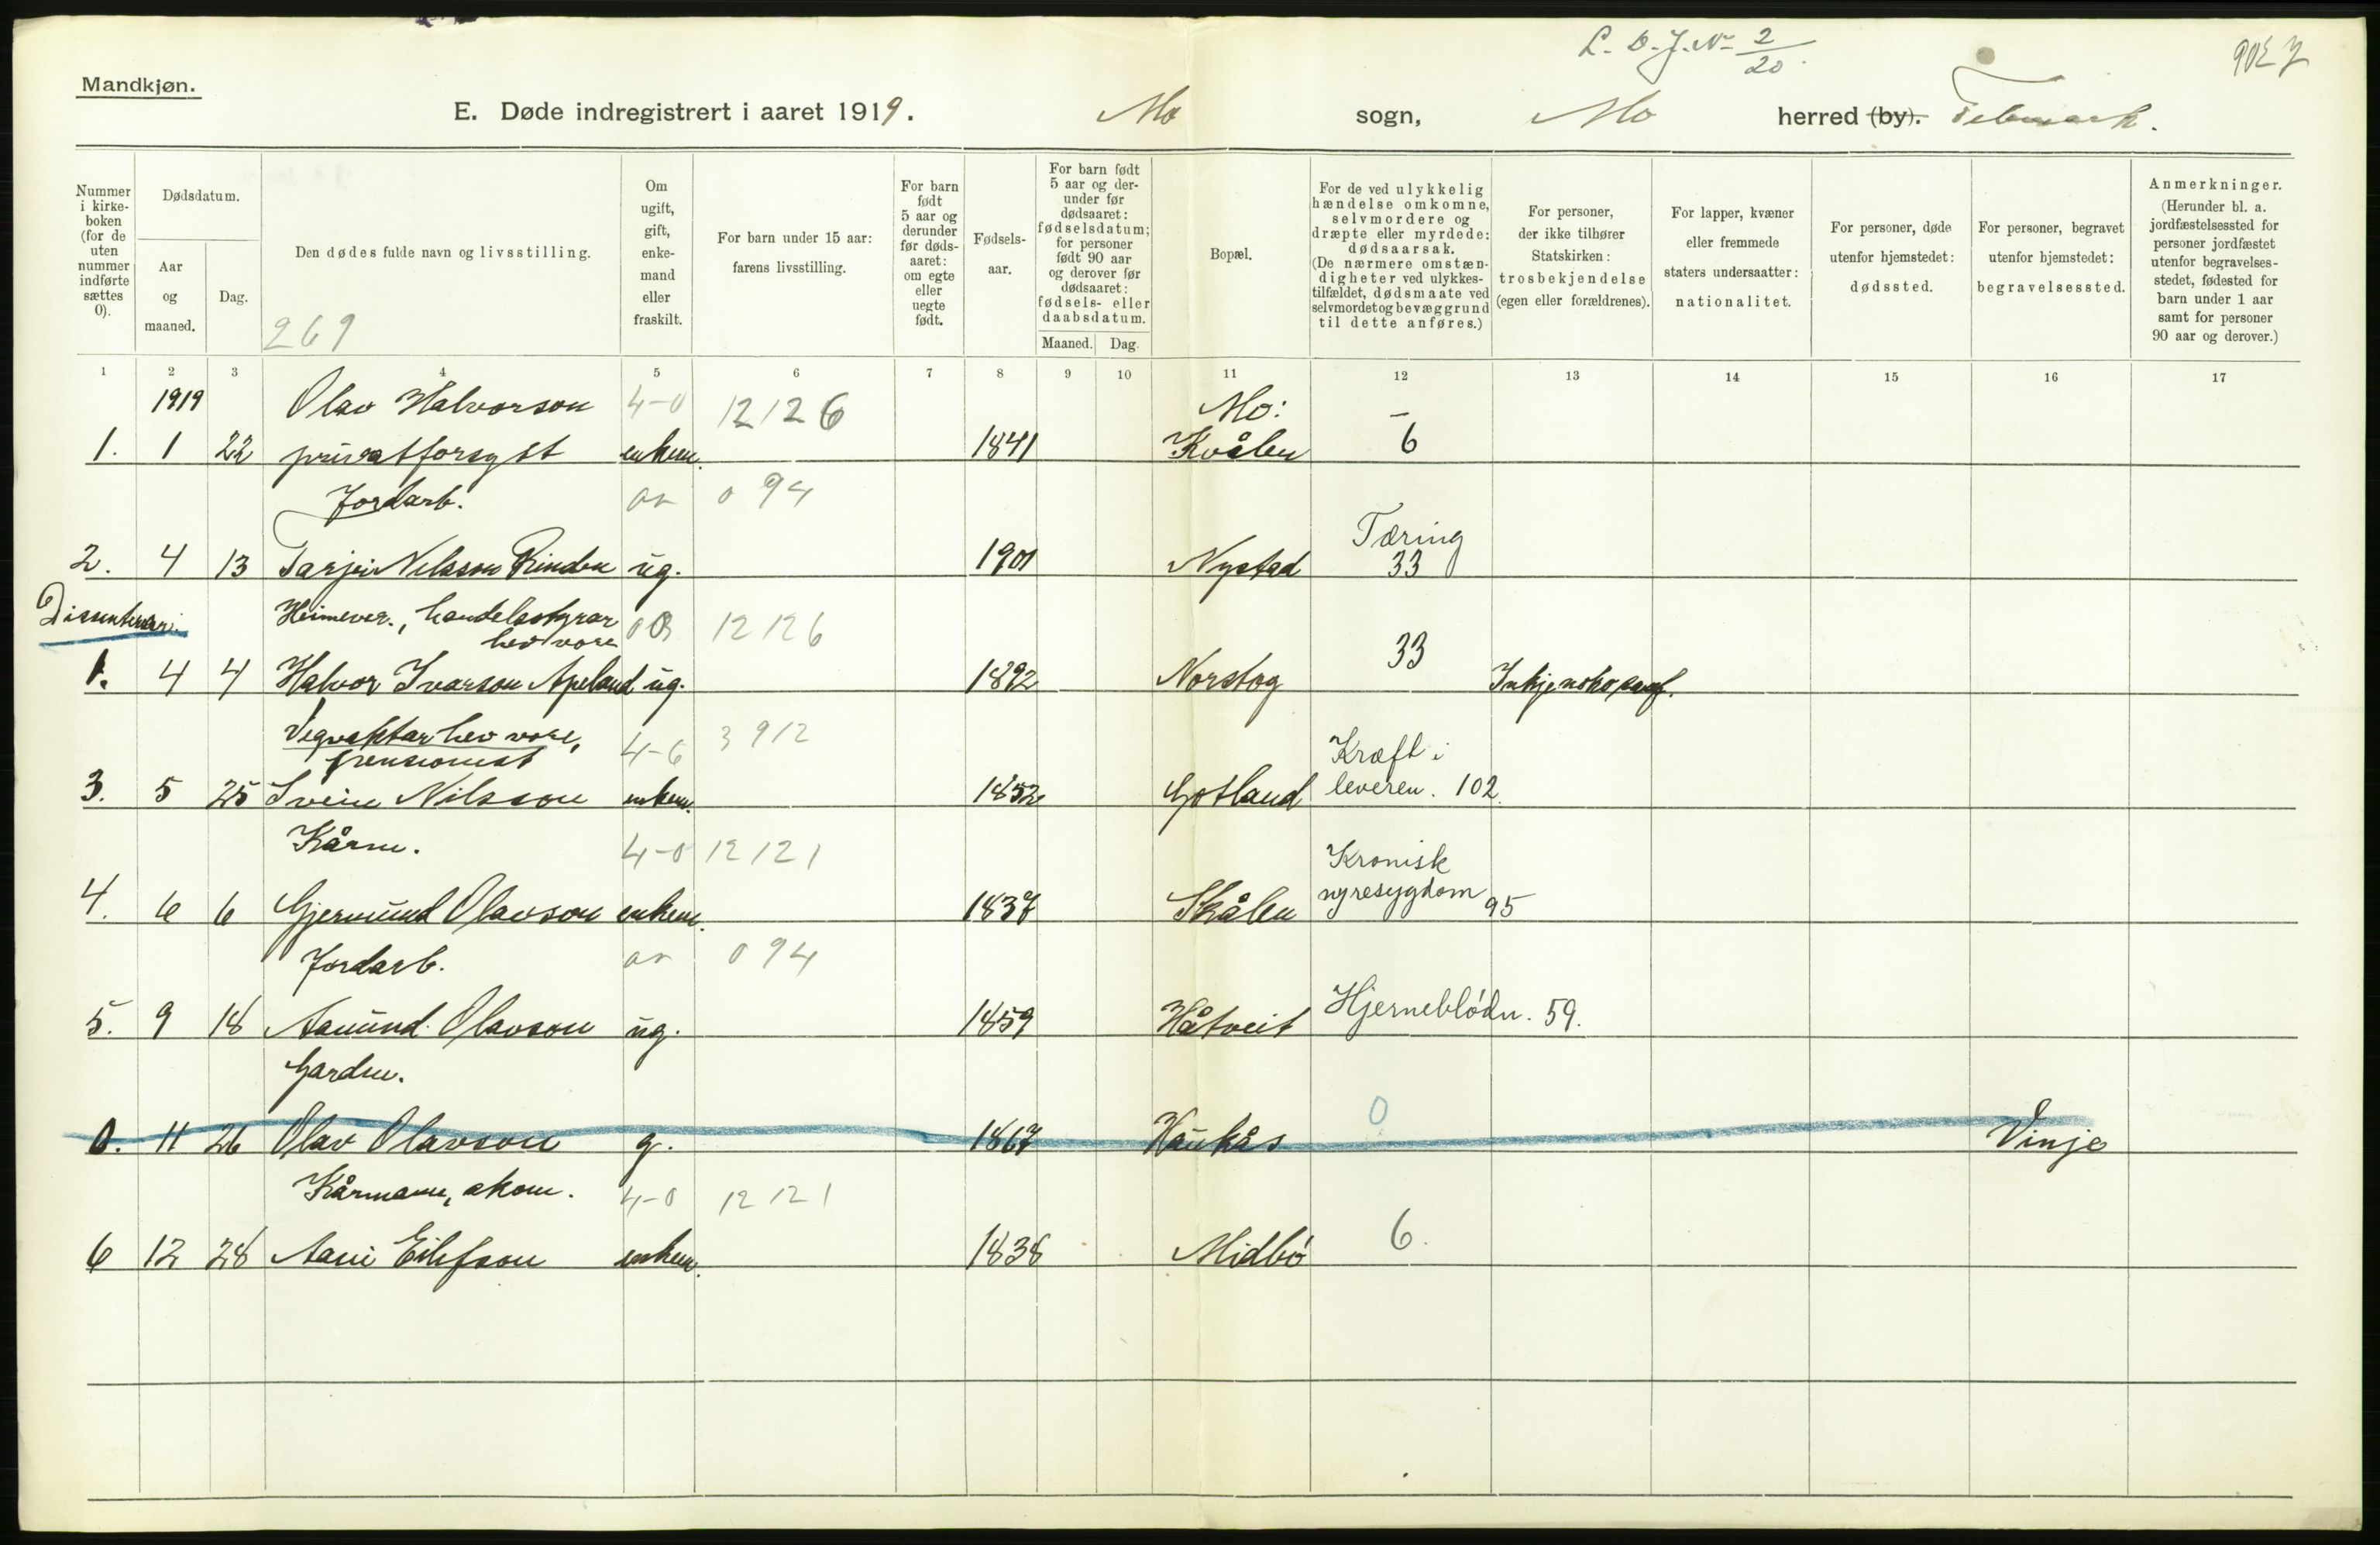 L. D. J. No 2/20.
Mandkjøn.
E. Døde indregistrert i aaret 1919. Mo sogn, Mo herred (by). Telemark.
Nummer i kirkeboken (for de uten nummer indførte sættes 0).
Dødsdatum.
Aar og maaned.
Dag.
Den dødes fulde navn og livsstilling.
269
Om ugift, gift, enkemand eller fraskilt.
For barn under 15 aar: farens livsstilling.
For barn født 5 aar og derunder før dødsaaret: om egte eller uegte født.
Fødselsaar.
For barn født 5 aar og derunder før dødsaaret: fødselsdatum; for personer født 90 aar og derover før dødsaaret: fødsels- eller daabsdatum.
Maaned. Dag.
Bopæl.
For de ved ulykkelig hændelse omkomne, selvmordere og dræpte eller myrdede: dødsaarsak. (De nærmere omstændigheter ved ulykkestilfældet, dødsmaate ved selvmordet og bevæggrund til dette anføres.)
For personer, der ikke tilhører Statskirken: trosbekjendelse (egen eller forældrenes).
For lapper, kvæner eller fremmede staters undersaatter: nationalitet.
For personer, døde utenfor hjemstedet: dødssted.
For personer, begravet utenfor hjemstedet: begravelsessted.
Anmerkninger. (Herunder bl. a. jordfæstelsessted for personer jordfæstet utenfor begravelsesstedet, fødested for barn under 1 aar samt for personer 90 aar og derover.)
1 2 3 4 5 6 7 8 9 10 11 12 13 14 15 16 17
1919 Olav Halvorson 4-0 12126 Mo: –
1. 1 22 privatforsyst enkem. 1841 Kvålen 6
Jordarb. 094
Tæring
2. 4 13 Tarjei Nilsson Rinden ug. 1901 Nystad 33
Dissenterar. Heimever., handelsstyrar 12126
hev vore
1. 4 4 Halvor Ivarson Apeland ug. 1892 Norstog 33
Vegvaktar hev vore, 4-6 3912 Kræft i
pensionist
3. 5 25 Svein Nilsson enkem. 1852 Gotland leveren. 102.
Kårm. 4-0 12121 Kronisk
nyresygdom
4. 6 6 Gjermund Olavson enkem. 1837 Skålen 95
Jordarb. 094
5. 9 18 Aamund Olavson ug. 1859 Håtveit Hjerneblødn. 59.
Gardm.
0
0. 11 26 Olav Olavson g. 1867 Haukås Vinje
Kårmann, skom. 4-0 12121
6 12 28 Aani Eilefson enkem. 1838 Midbø 6.